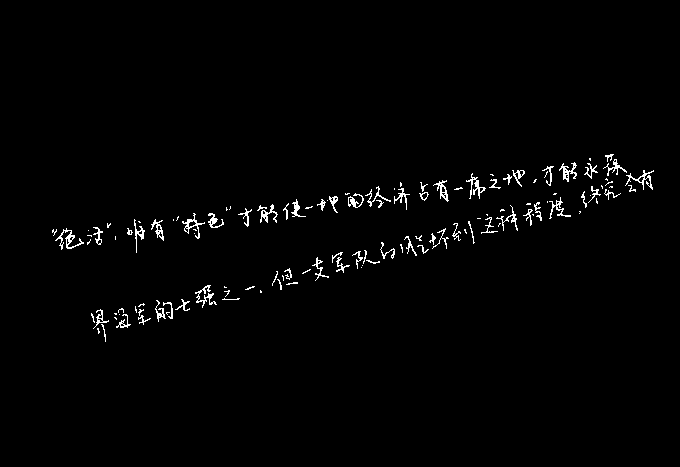 “绝活”，唯有“特色”才能使一地的经济占有一席之地，才能永葆
界海军的七强之一，但一支军队的胜坏到这种程度，终究会有